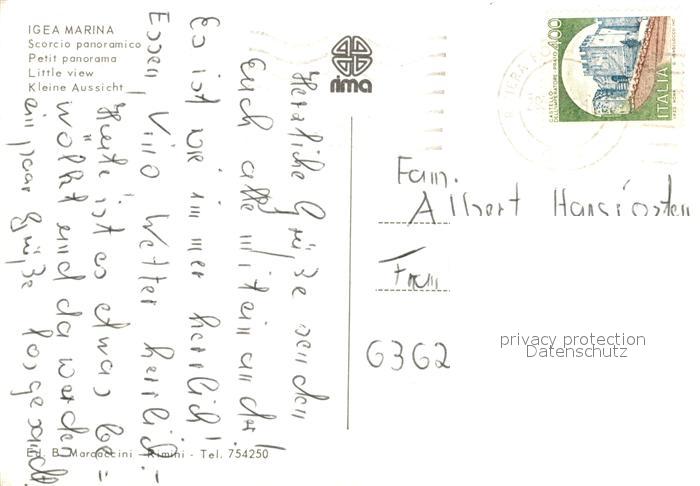 IGEA MARINA
Scorcio panoramico
Petit panorama
Little view
Kleine Aussicht
rima
Herzliche Grüße senden
Euch alle miteinander!
Es ist wie immer herrlich!
Essen, Vino Wetter herrlich.-
Heute ist es etwas be=
wölkt und da werden
ein paar Grüße losgesandt.
Ed. B. Marcaccini - Rimini - Tel. 754250
400
CASTELLO DELL'IMPERATORE PRATO
ITALIA
Fam.
Albert
6362
privacy protection
Datenschutz